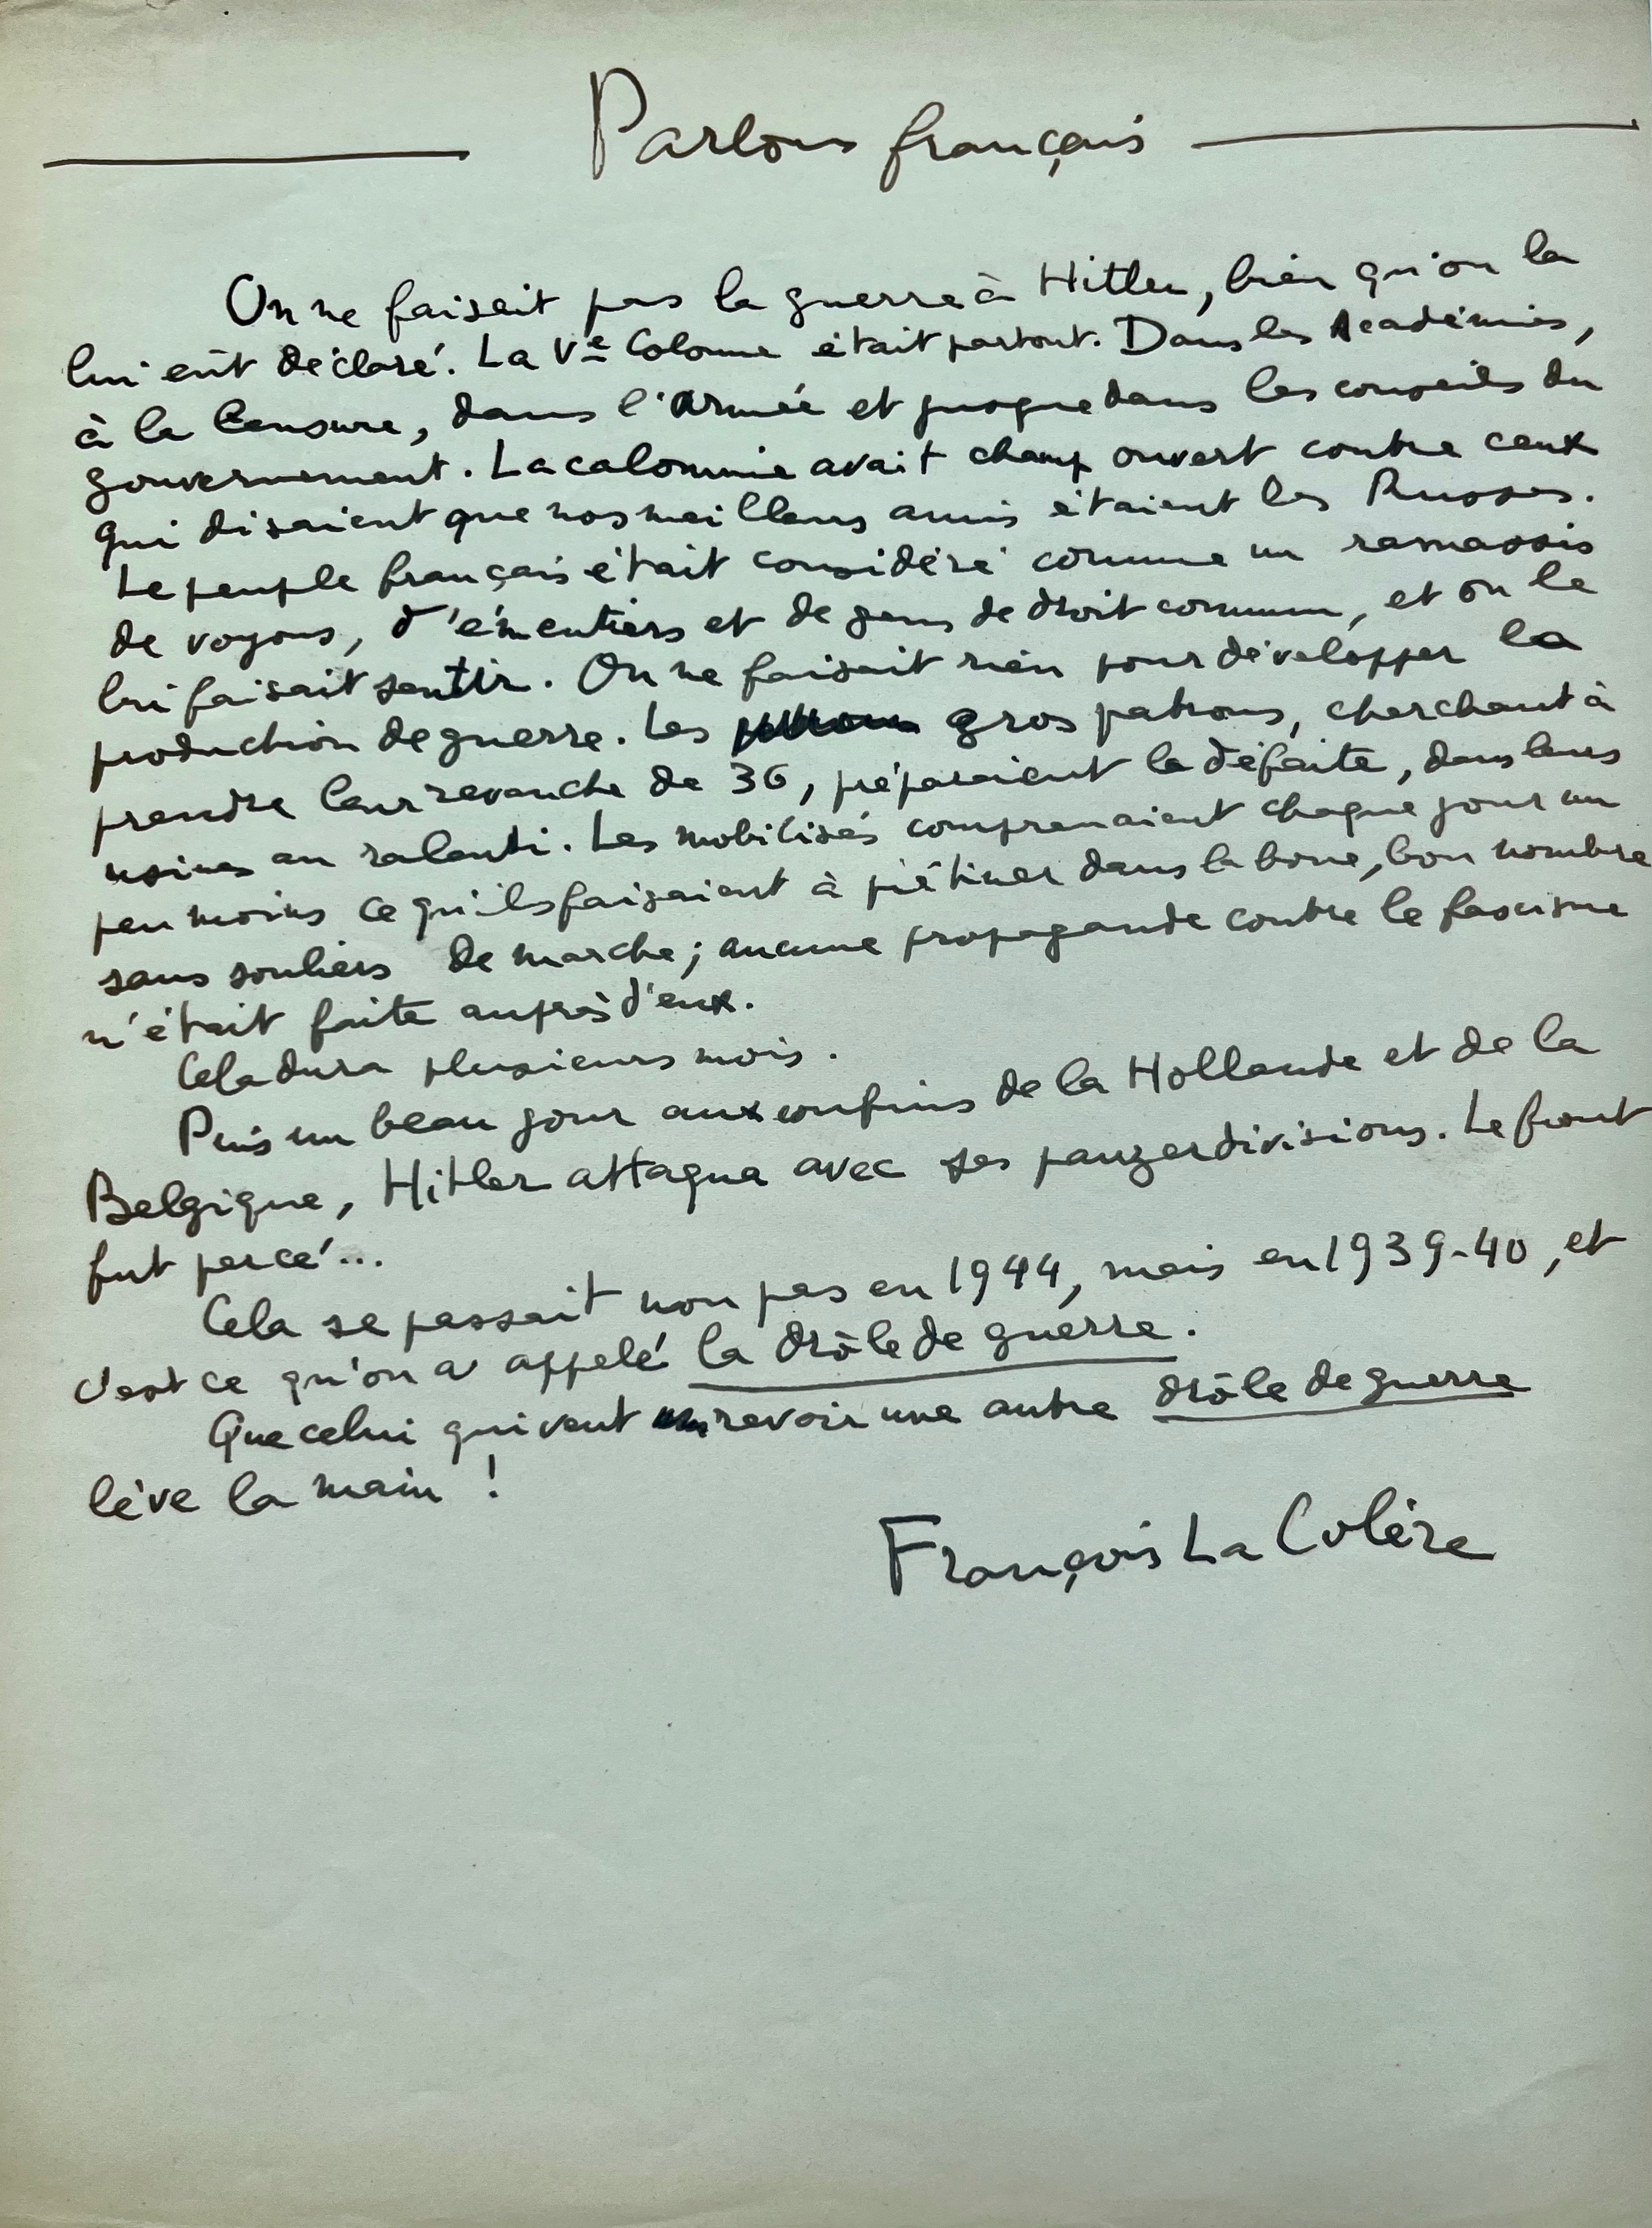 Parlons français
On ne faisait pas la guerre à Hitler, bien qu'on la
lui eût déclaré. La Ve Colonne était partout. Dans les Académies,
à la Censure, dans l'Armée et jusque dans les conseils du
gouvernement. La calomnie avait champ ouvert contre ceux
qui disaient que nos meilleurs amis étaient les Russes.
Le peuple français était considéré comme un ramassis
de voyous, d'émeutiers et de gens de droit commun, et on le
lui faisait sentir. On ne faisait rien pour développer la
production de guerre. Les gros patrons, cherchant à
prendre leur revanche de 36, préparaient la défaite, dans leurs
usines au ralenti. Les mobilisés comprenaient chaque jour un
peu moins ce qu'ils faisaient à piétiner dans la boue, bon nombre
sans souliers de marche ; aucune propagande contre le fascisme
n'était faite auprès d'eux.
Cela dura plusieurs mois.
Puis un beau jour aux confins de la Hollande et de la
Belgique, Hitler attaqua avec ses panzerdivisions. Le front
fut percé...
Cela se passait non pas en 1944, mais en 1939-40, et
c'est ce qu'on a appelé la drôle de guerre.
Que celui qui veut revoir une autre drôle de guerre
lève la main !
François La Colère